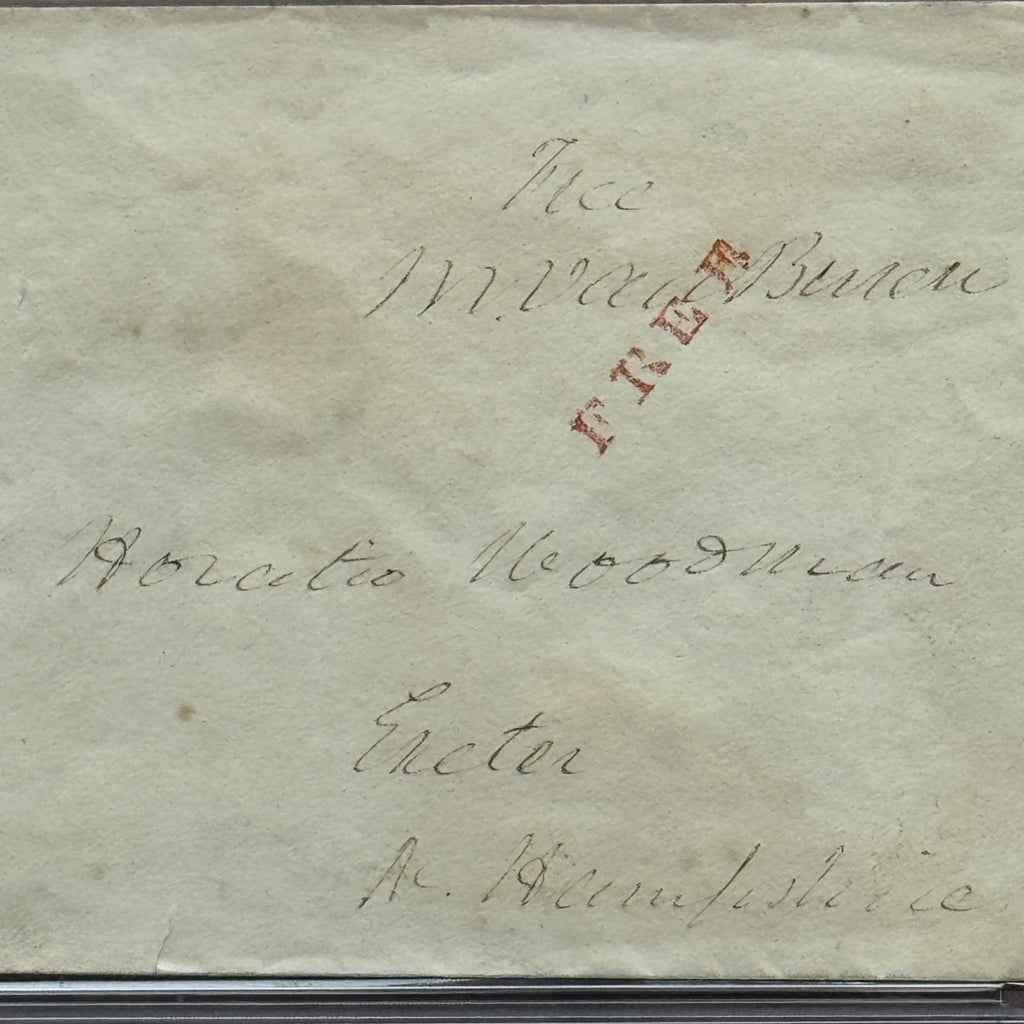 Free
M. Van Buren
FREE
Horatio Woodman
Exeter
N. Hampshire